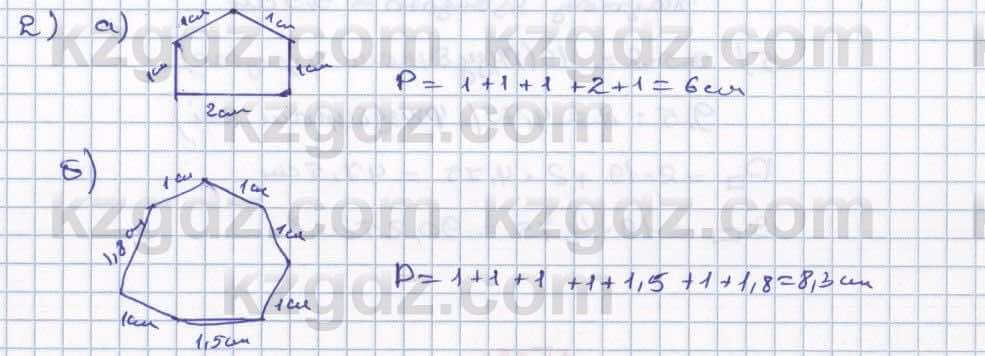 2) а)
1см 1см
1см 1см
2см
P = 1+1+1+2+1 = 6 см
б)
1см 1см
1,8 см 1см
1см 1см
1,5см
P = 1+1+1+1+1,5+1+1,8=8,3см
kzgdz.com kzgdz.com
kzgdz.com
kzgdz.com kzgdz.com
kzgdz.com